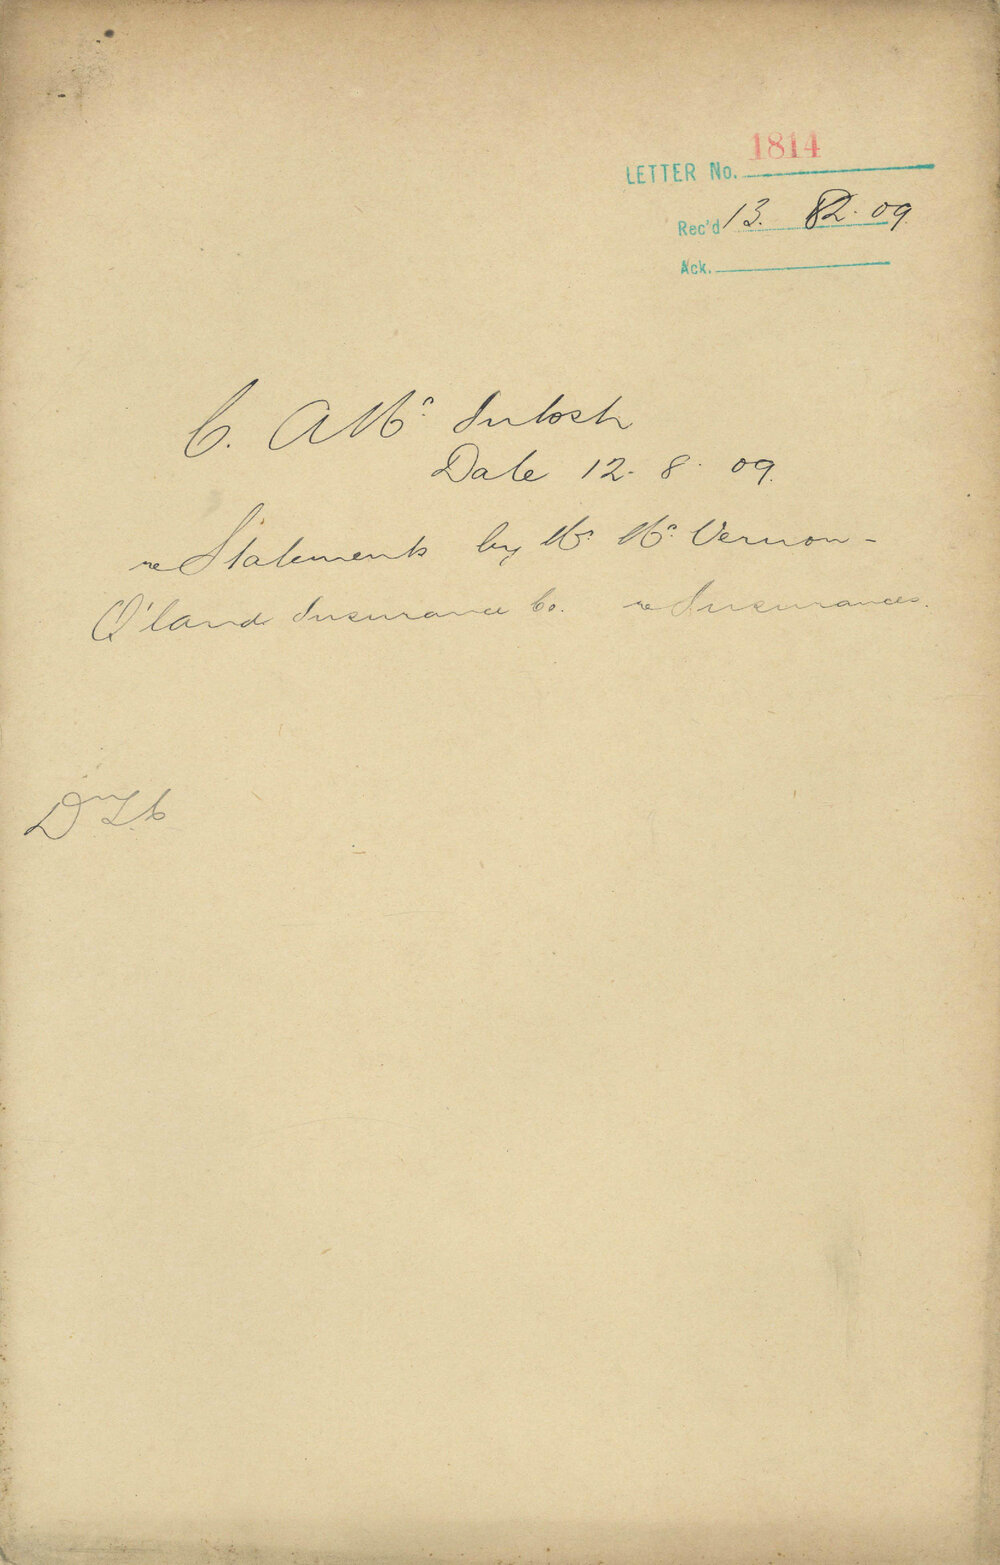 LETTER No. 1814
Rec'd 13. 8. 09
Ack.
C. A Mc Intosh
Date 12. 8. 09.
re Statements by Mr. Mc Vernon -
Q'land Insurance Co. re Insurances.